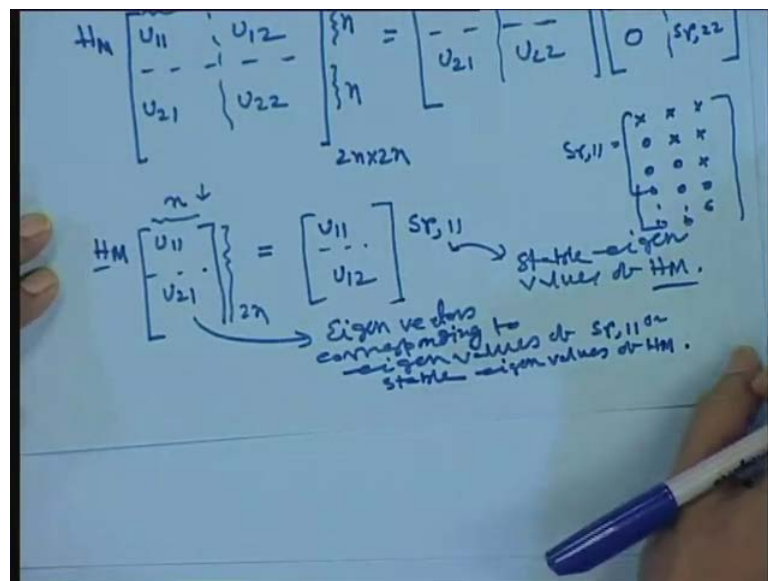 HM [ U11 | U12 ] }n = [ -- | -- ] [
[ -- -- ] [ U21 | U22 ] [ 0 | Sr,22 ]
[ U21 | U22 ] }n
2n×2n
Sr,11 = [ x x x
0 x x
0 0 x
0 0 0
n ↓
HM [ U11 --- U21 ] } 2n = [ U11 --- U12 ] Sr,11
stable eigen
values of HM.
Eigen vectors
corresponding to
eigen values of Sr,11 or
stable eigen values of HM.